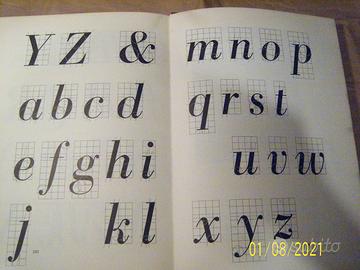 Y Z &
a b c d
e f g h i
j k l
m n o p
q r s t
u v w
x y z
01/08/2021